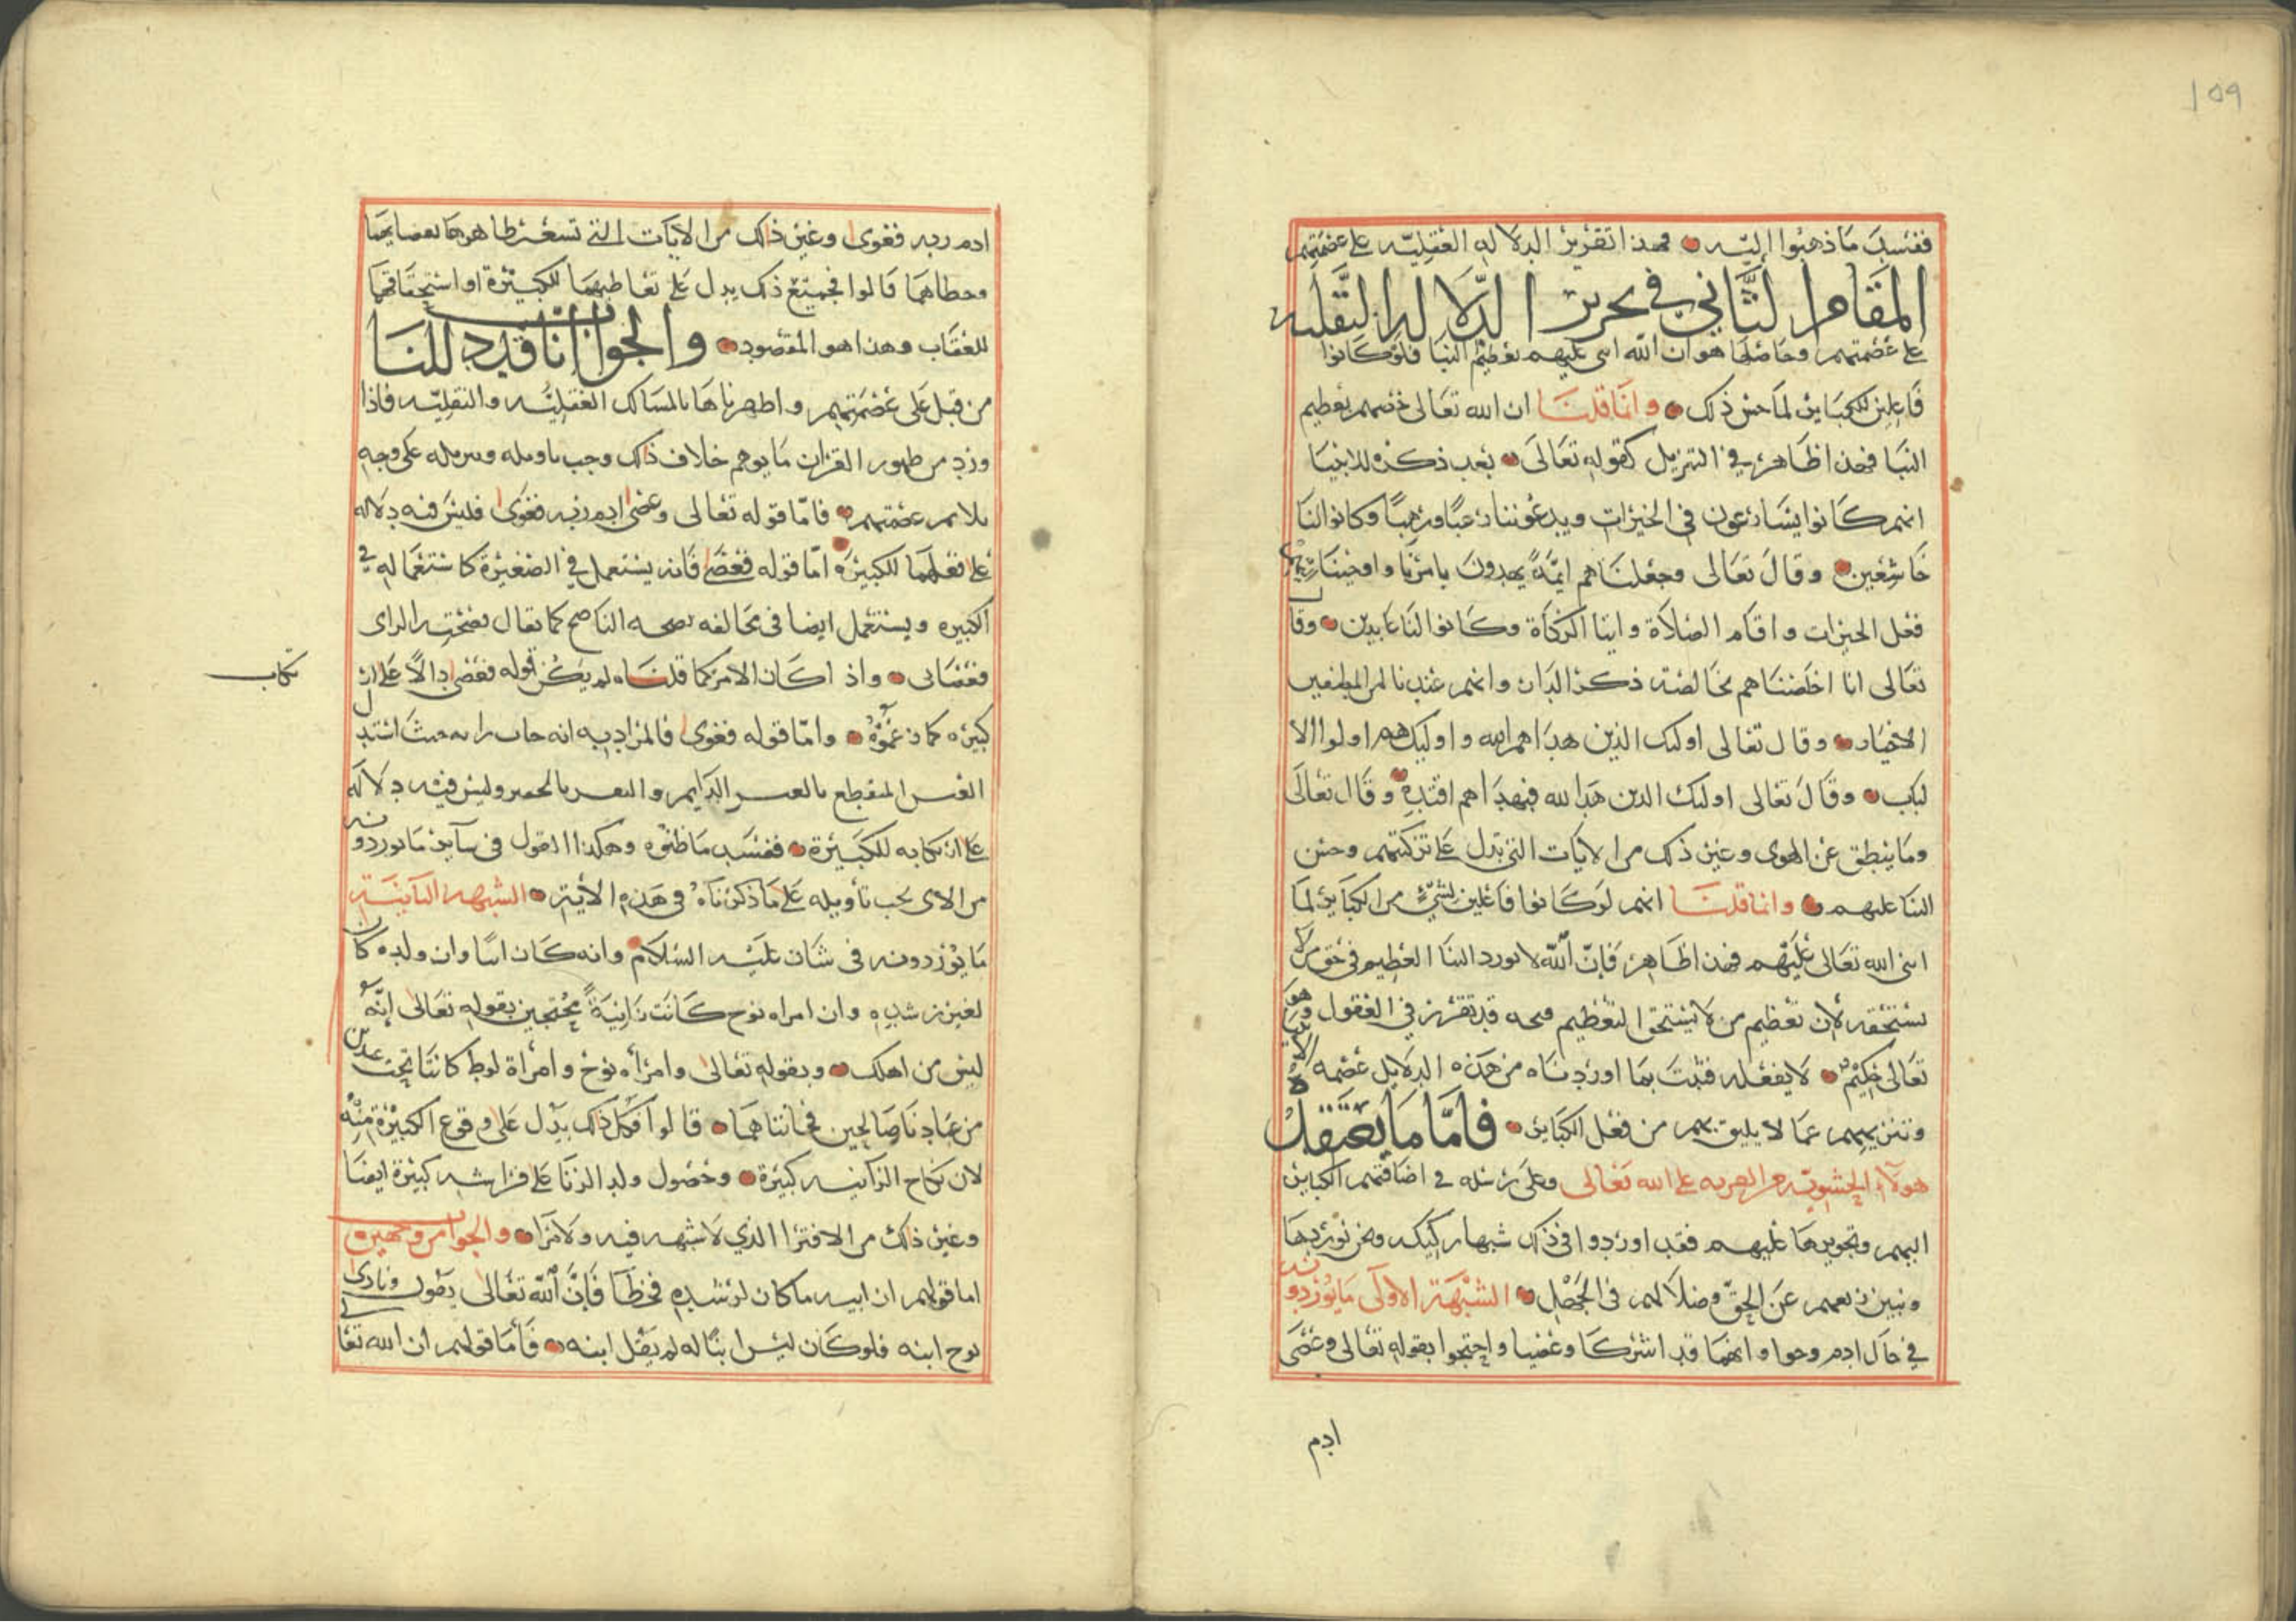 ١٥٩
ففسد ما ذهبوا اليه فهذا تقرير الدلاله العقليه على عصمتهم
المقام الثاني في تحرير الدلاله النقليه
على عصمتهم وحاصلها هو ان الله اثنى عليهم بعظيم الثنا فلو كانوا
فاعلين للكباير لما حسن ذلك وانما قلنا ان الله تعالى خصهم بعظيم
الثنا فهذا ظاهر في التنزيل كقوله تعالى بعد ذكره للانبيا
انهم كانوا يسارعون في الخيرات ويدعوننا رغبا ورهبا وكانوا لنا
خاشعين وقال تعالى وجعلناهم ايمة يهدون بامرنا واوحينا اليهم
فعل الخيرات واقام الصلاة وايتا الزكاة وكانوا لنا عابدين وقال
تعالى انا اخلصناهم بخالصة ذكرى الدار وانهم عندنا لمن المصطفين
الاخيار وقال تعالى اوليك الذين هداهم الله واوليك هم اولوا الا
لباب وقال تعالى اوليك الذين هدا الله فبهداهم اقتده وقال تعالى
وما ينطق عن الهوى وغير ذلك من الايات التي تدل على تزكيتهم وحسن
الثنا عليهم وانما قلنا انهم لو كانوا فاعلين لشيء من الكباير لما
اثنى الله تعالى عليهم فهذا ظاهر فان الله لا يورد الثنا العظيم في حق من لا
يستحقه لان تعظيم من لا يستحق التعظيم قبحه قد تقرر في العقول وهو
تعالى حكيم لا يفعله فثبت بما اوردناه من هذه الدلايل عصمه
وتنزيههم عما لا يليق بهم من فعل الكباير فاما ما يعتقده
هولاء الحشويه من الفريه على الله تعالى وعلى رسله في اضافتهم الكباير
اليهم وتجويزها عليهم فقد اوردوا في ذلك شبها ركيكه ونحن نوردها
ونبين زيغهم عن الحق وضلالهم في الجهل الشبهة الاولى ما يوردونه
في حال ادم وحوا وانهما قد اشركا وعصيا واحتجوا بقوله تعالى وعصى
ادم
ادم ربه فغوى وغير ذلك من الايات التي تشعر ظاهرها بعصيانهما
وخطاهما قالوا فجميع ذلك يدل على تعاطيهما للكبيرة او استحقاقهما
للعقاب وهذا هو المقصود والجواب انا قد دللنا
من قبل على عصمتهم واظهرناها بالمسالك العقليه والنقليه فاذا
ورد من ظهور القران ما يوهم خلاف ذلك وجب تاويله وتنزيله على وجه
يلايم عصمتهم فاما قوله تعالى وعصى ادم ربه فغوى فليس فيه دلاله
على فعلهما للكبيرة اما قوله فعصى فانه يستعمل في الصغيرة كاستعماله في
الكبيره ويستعمل ايضا في مخالفه نصحه الناصح كما يقال نصحته الراى
فعصانى واذا كان الامر كما قلناه لم يكن قوله فعصى دالا على ان
تكاب
كبيره كما زعموه واما قوله فغوى فالمراد به انه خاب رايه حيث استبدل
العيش المنقطع بالعيش الدايم والنعيم بالحقير وليس فيه دلاله
على ارتكابه للكبيرة ففسد ما ظنوه وهكذا القول في ساير ما يوردونه
من الاى يجب تاويله على ما ذكرناه في هذه الاية الشبهه الثانية
ما يوردونه في شان عليه السلام وانه كان وان ولده كان
لغير رشده وان امراه نوح كانت زانية محتجين بقوله تعالى انه
ليس من اهلك وبقوله تعالى وامراه نوح وامرأة لوط كانتا تحت عبدين
من عبادنا صالحين فخانتاهما قالوا فكل ذلك يدل على وقوع الكبيرة منه
لان نكاح الزانيه كبيرة وحصول ولد الزنا على فراشه كبيرة ايضا
وغير ذلك من الافترا الذي لا شبهه فيه ولا مرا والجواب من وجهين
اما قولهم ان ابنه ما كان لرشده فخطا فان الله تعالى يقول ونادى
نوح ابنه فلو كان ليس ابنا له لم يقل ابنه فأما قولهم ان الله تعا